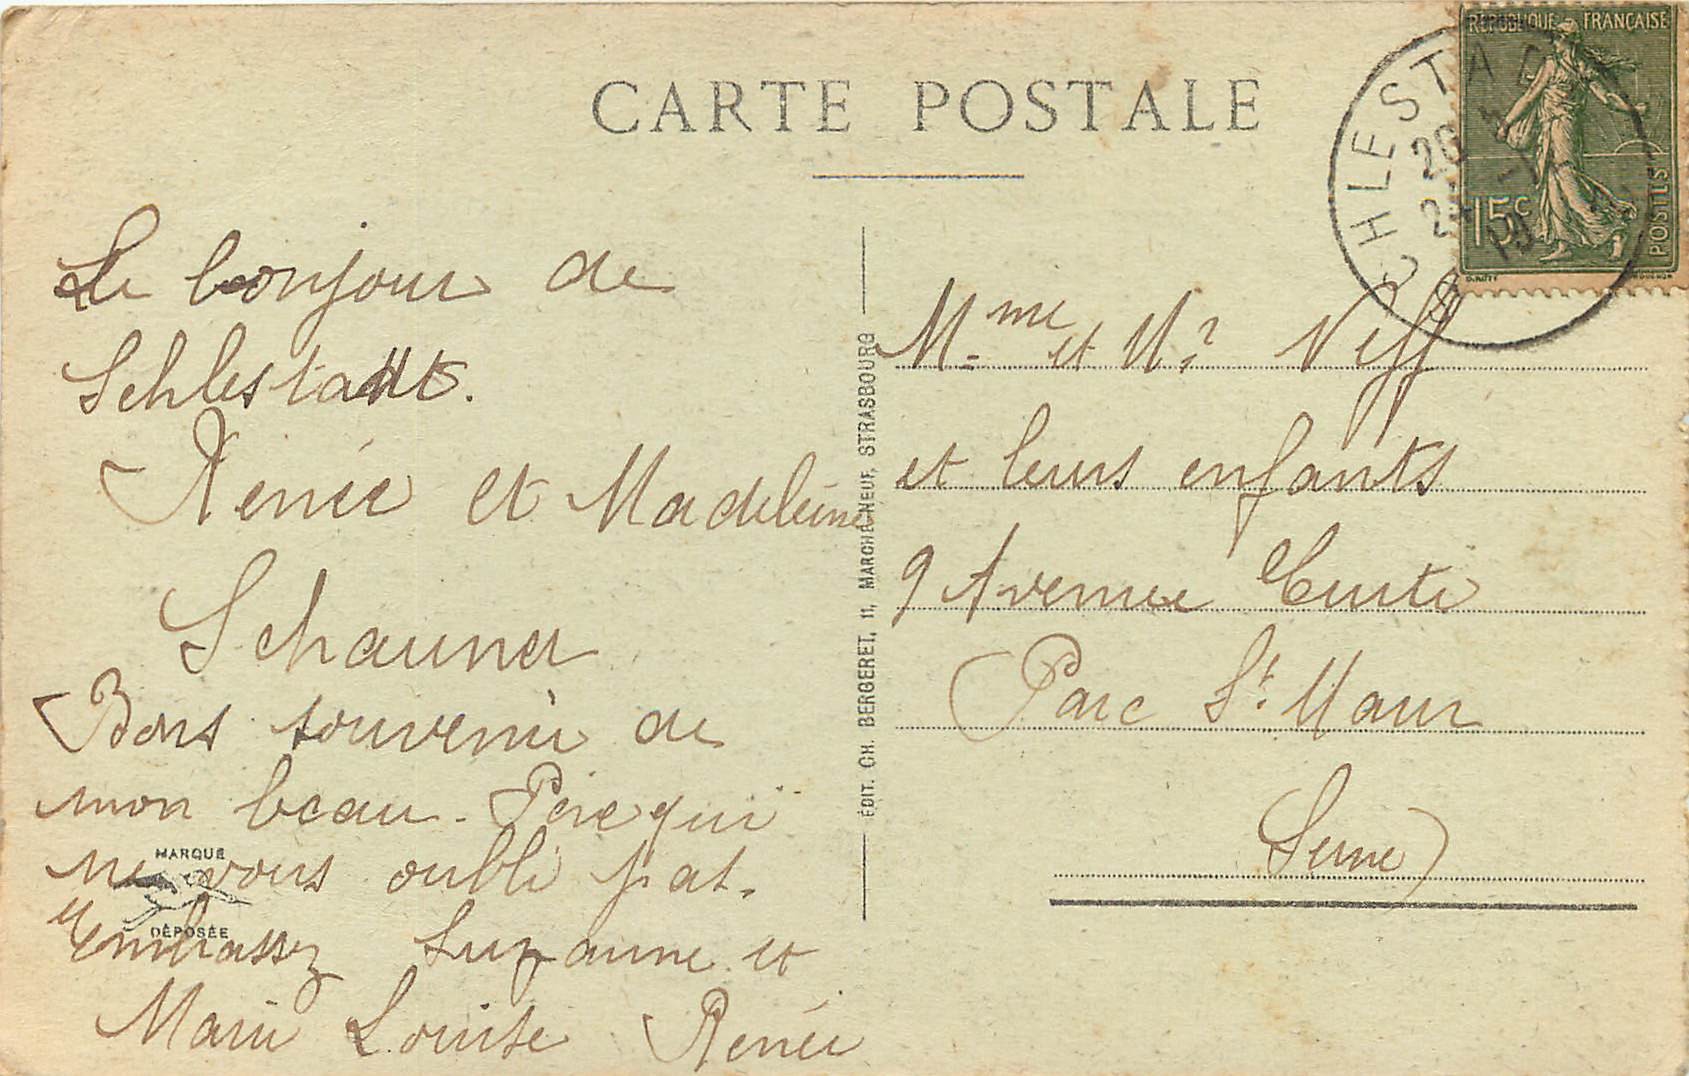 CARTE POSTALE
RÉPUBLIQUE FRANÇAISE
15c
POSTES
SCHLESTAD
20
24 - 19
Le bonjour de
Schlestadt.
Renée et Madeleine
Schauner
Bons souvenir de
mon beau-Père qui
ne vous oubli pas.
Embrassez Suzanne et
Marie Louise Renée
MARQUE
DÉPOSÉE
ÉDIT. CH. BERGERET, 11, MARCHÉ NEUF, STRASBOURG
Mme et Mr Neff
et leurs enfants
9 Avenue Curti
Parc St. Maur
Seine)